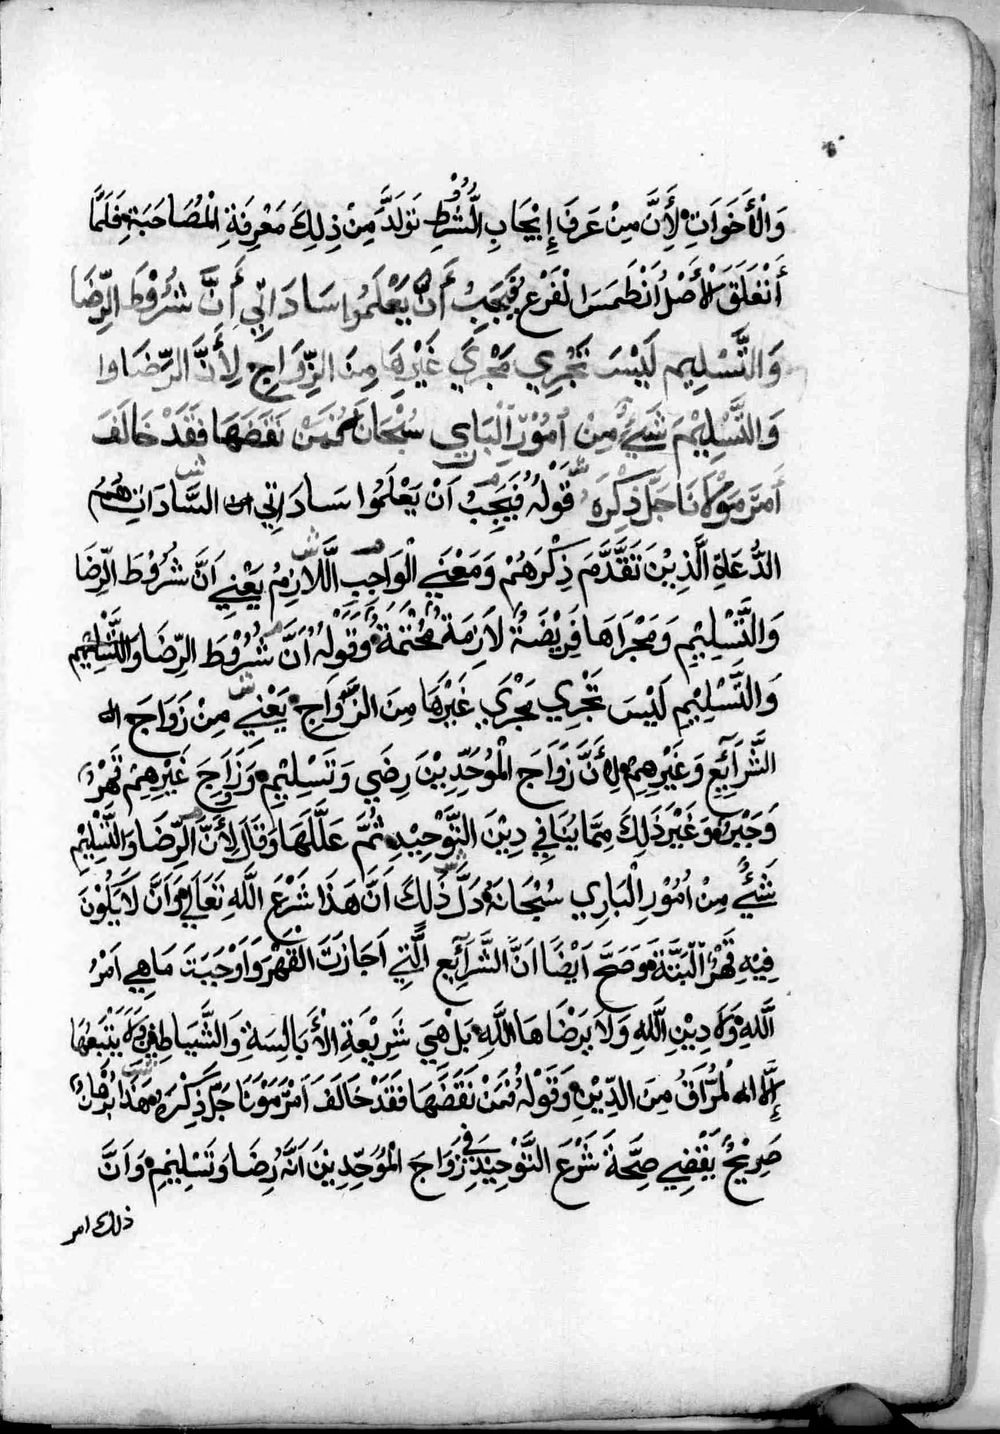 وَالْأَخَوَاتِ لِأَنَّ مِنْ عَرَفَ إِيْجَابِ الشُّرُوْطِ تَوَلَدَّ مِنْ ذِلِكَ مَعْرِفَةِ الْمُصَاحَبَةِ فَلَمَّا
أَنْغَلَقَ الْأَصْلُ اَنْطَمَسَ الْفَرْع فَيَجِبُ أَنْ يَعْلَمُوا سَادَاتِي أَنَّ شُرُوْطَ الرِّضَا
وَالتَّسْلِيمِ لَيْسَ تَجْرِي مَجْرَي غَيْرِهَا مِنَ الزِّوَاجِ لِأَنَّ الرِّضَا وا
وَالتَّسْلِيْمَ شَيْءٌ مِنْ اُمُوْرِ الْبَارِي سُبْحَانَهُ فَمَنْ نَقَضَهَا فَقَدْ خَالَفَ
اَمْرَ مَوْلَانَا جَلَّ ذِكْرَهُ قَوْلهُ فَيَجِبُ اَنْ يَعْلَمُوا سَادَاتِي السَّادَاتِ هُمُ
الدُّعَاةِ الَّذِيْنَ تَقَدَّمَ ذِكْرَهُمْ وَمَعْنَي الْوَاجِبِ اللَّلازِمُ يَعْنِي اَنَّ شُرُوْطَ الرِّضَا
وَالتَّسْلِيْمِ وَمَجْرَاهَا فَرِيْضَةٌ لَازِمَةٌ مُحْتَمَةٌ وَقَوْلهُ اَنَّ شُرُوْطَ الرِّضَا وَالتَّسْلِيْمِ
وَالتَّسْلِيْمِ لَيْسَ تَجْرِي مَجْرَي غَيْرِهَا مِنَ الزَّوَاجِ يَعْنِي مِنْ زَوَاجَ اله
الشَّرَآئِعِ وَغَيْرِهِمْ لِأَنَّ زَوَاجَ الْمُوَحِّدِيْنَ رِضَي وَتَسْلِيْمٍ وَزَوَاجَ غَيْرِهِمْ قَهْرٌ
وَجَبْرٌ وَغَيْرَ ذَلِكَ مِمَّا يُنَافِي دِيْنَ التَّوْحِيْدِ ثُمَّ عَلَّلَهَا وَقَالَ لِأَنَّ الرِّضَا وَالتَّسْلِيْمِ
شَيْءٌ مِنْ اُمُوْرِ الْبَارِي سُبْحَانَهُ دَلَّ ذَلِكَ اَنَّ هَذَا شَرْعَ اللَّهِ تَعَالَي وَاَنَّ لَا يَكُوْنَ
فِيْهِ قَهْرٌ اَلْبَتَّةَ وَصَحَّ اَيْضًا اَنَّ الشَّرَآئِعِ الَّتِي اَجَازَتَ الْقَهْرَ وَاَوْجَبَتَ مَا هِي اَمْرُ
اللَّهِ وَلَا دِيْنِ اللَّهِ وَلَا يَرْضَاهَا اللَّهِ بَلْ هِيَ شَرِيْعَةِ الْأَبَالِسَةِ وَالشَّيَاطِيْنِ وَلَا يَتْبَعُهَا
إِلَّا اله لْمُرَّاقُ مِنَ الدِّيْنِ وَقَوْلهُ فَمَنْ نَقَضَهَا فَقَدْ خَالَفَ اَمْرَ مَوْنَا جَلَّ ذِكْرَهُ وَهَذَا بُرْهَانٌ
صَرِيْحٌ يَقْضِي صِحَّةَ شَرْعَ التَّوْحِيْدِ فِي زَوَاجَ الْمُوَحِّدِيْنَ اَنَّهُ رِضَا وَتَسْلِيْمٍ وَاَنَّ
ذلك امر